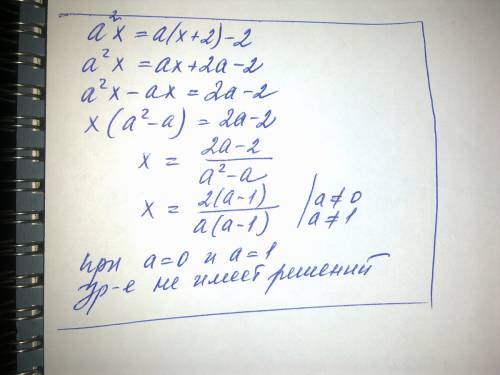 a²x = a(x+2) - 2
a²x = ax + 2a - 2
a²x - ax = 2a - 2
x(a² - a) = 2a - 2
x = (2a - 2)/(a² - a)
x = 2(a-1)/a(a-1) | a ≠ 0
a ≠ 1
при a = 0 и a = 1
ур-е не имеет решений